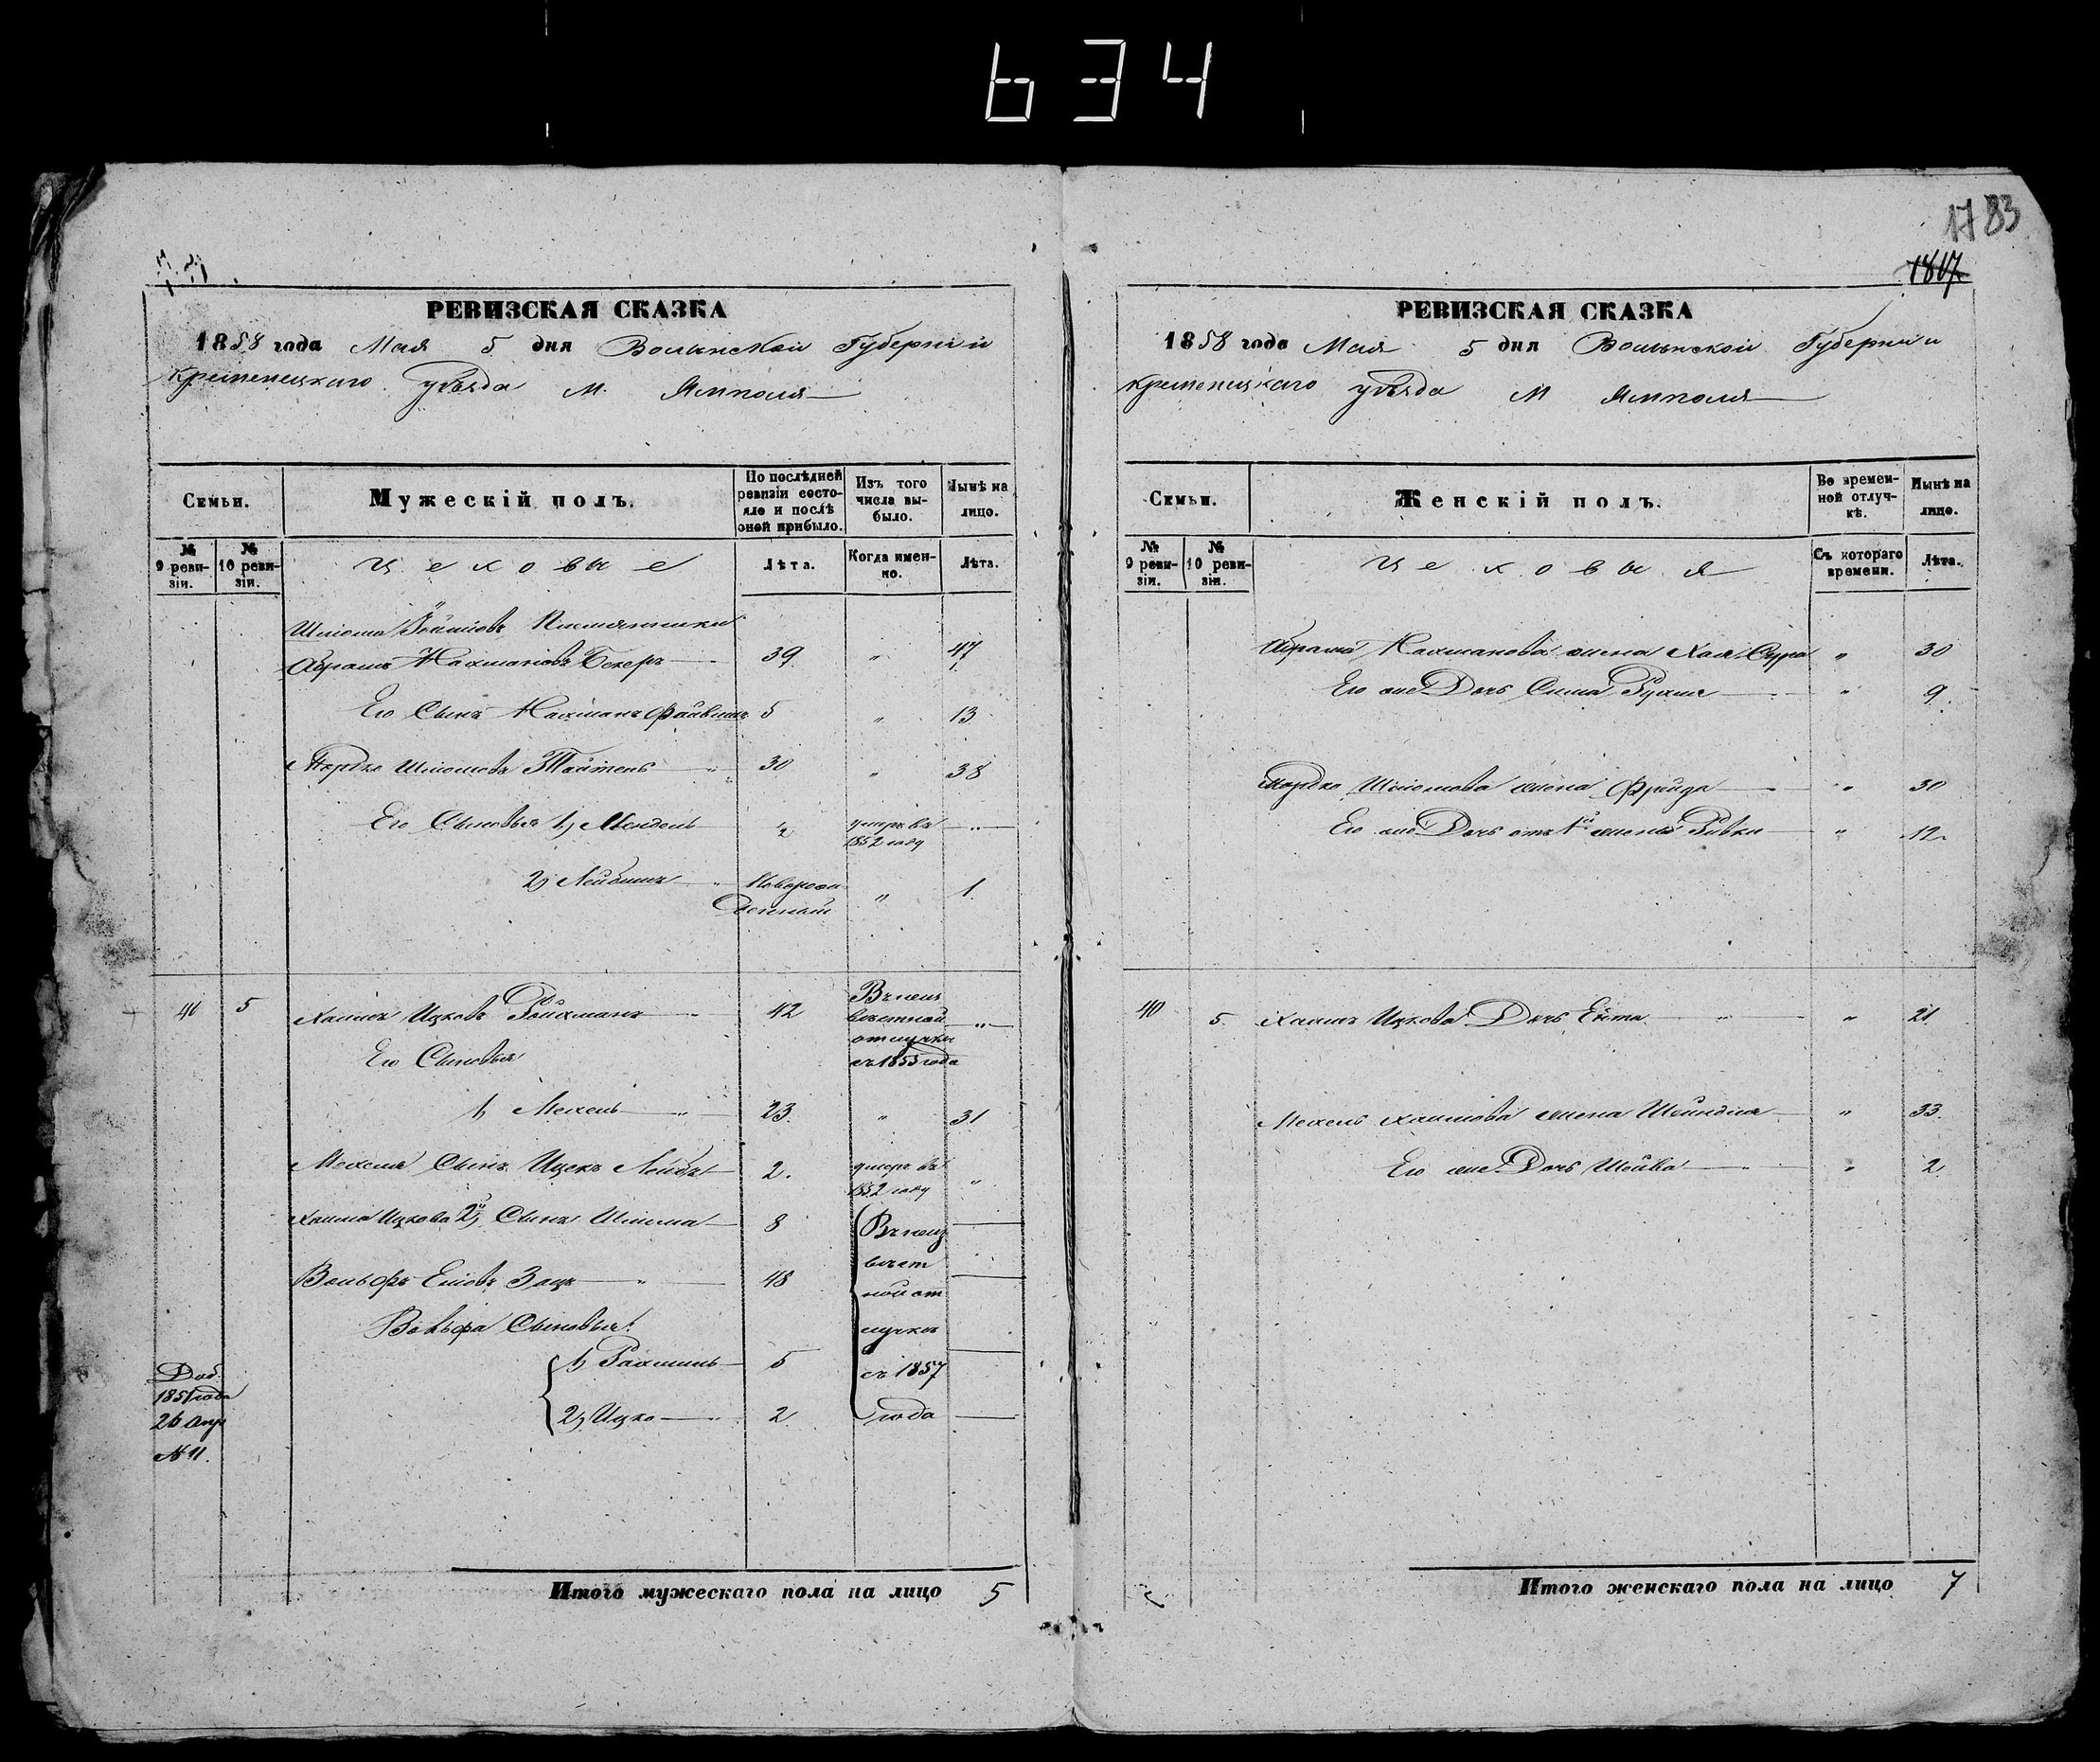 634
1783
1817
РЕВИЗСКАЯ СКАЗКА
1858 года Мая 5 дня Волынской Губернии
Кременецкаго уѣзда м. Ямполя
Семьи.
Мужескій полъ.
По послѣдней ревизіи состояло и послѣ оной прибыло.
Изъ того числа выбыло.
Нынѣ на лицо.
№ 9 ревизіи.
№ 10 ревизіи.
Цеховые
Лѣта.
Когда именно.
Лѣта.
Шлома Племянники
Абрамъ Нахмановъ Бекеръ 39 " 47
Его Сынъ Нахманъ Файвишъ 5 " 13
Мордко Шлиомовъ 30 " 38
Его Сыновья 1, Мендель 2 умеръ въ 1852 году "
2, Лейбишъ Новорожденный " 1
40 5 Хаимъ Ицковъ Ройхманъ 42 Въ неизвѣстной отлучкѣ съ 1855 года "
Его Сыновья
1, Мехель " 23 " 31
Мехеля Сынъ Ицекъ Лейбъ 2. умеръ въ 1852 году "
Хаима Ицкова 2й Сынъ Шлиома 8
Вольфъ Еліовъ Зацъ " 48
Вольфа Сыновья:
1, Рахмиль 5
2, Ицко " 2
Въ неизвѣстной отлучкѣ съ 1857 года
Доб. 1851 года 26 Апр №11.
Итого мужескаго пола на лицо 5
РЕВИЗСКАЯ СКАЗКА
1858 года Мая 5 дня Волынской Губернии
Кременецкаго уѣзда М Ямполя
Семьи.
Женскій полъ.
Во временной отлучкѣ.
Нынѣ на лицо.
№ 9 ревизіи.
№ 10 ревизіи.
Цеховыя
Съ котораго времени.
Лѣта.
Абрама Нахманова жена Хая Сура " 30
Его же Дочь Сима Рухля " 9
Мордко Шлиомова жена Фрейда " 30
Его же Дочь отъ 1й жены Ривка " 12
40 5. Хаимъ Ицкова Дочь Ента " " 21
Мехель Хаимова жена Шейндля " 33
Его же Дочь Шейва " " 2
Итого женскаго пола на лицо 7